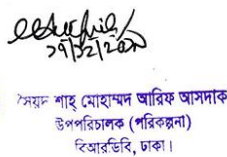 ২৭/১২/২০২১
সৈয়দ শাহ্ মোহাম্মদ আরিফ আসদাক
উপপরিচালক (পরিকল্পনা)
বিআরডিবি, ঢাকা।